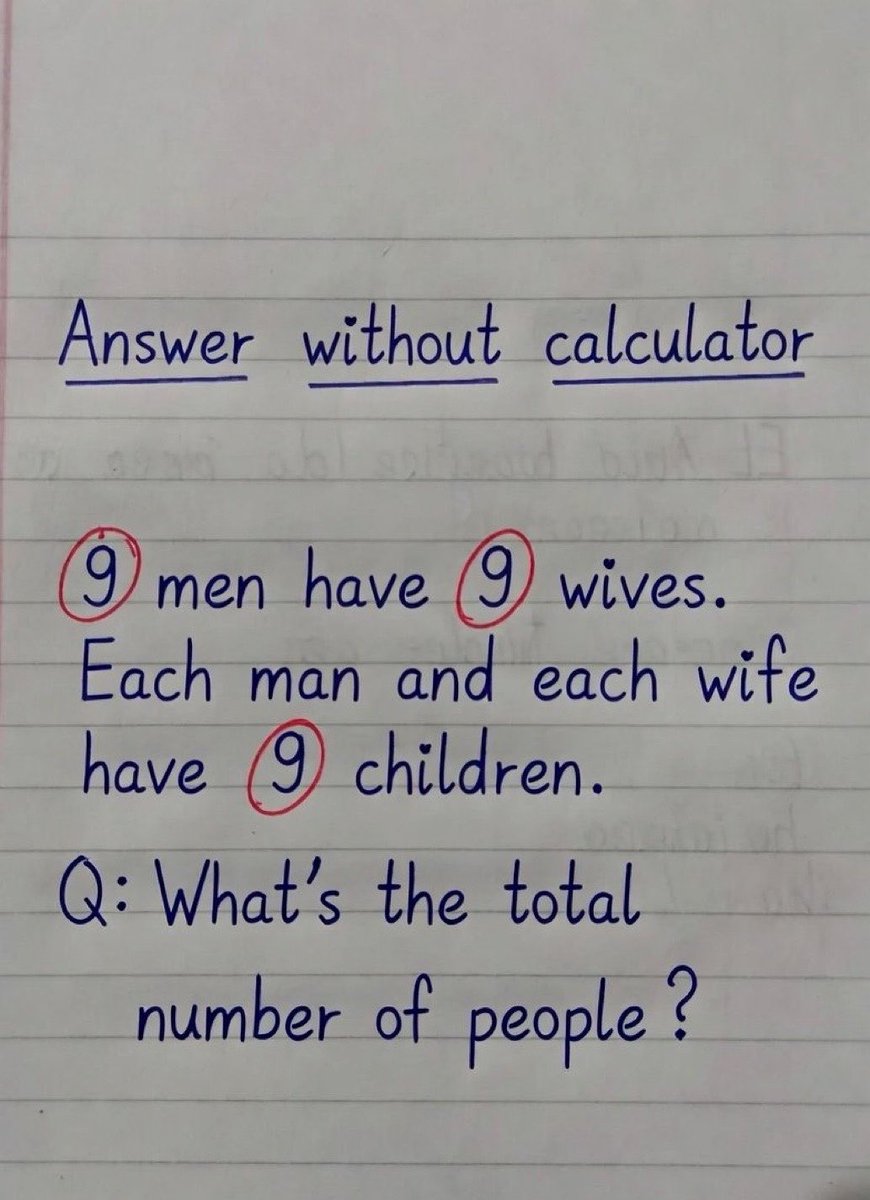 Answer without calculator
9 men have 9 wives.
Each man and each wife
have 9 children.
Q: What's the total
number of people?